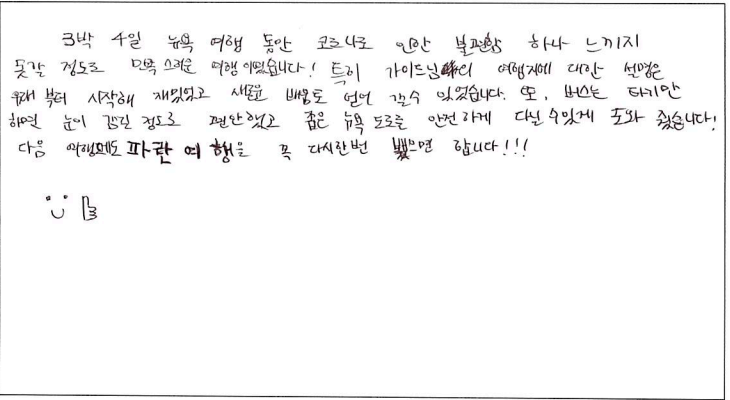 3박 4일 뉴욕 여행 동안 코로나로 인한 불편함 하나 느끼지
못할 정도로 만족스러운 여행이었습니다! 특히 가이드님의 여행지에 대한 설명은
유래부터 시작해 재밌었고 새로운 배움도 얻어 갈수 있었습니다. 또, 버스는 타기만
하면 눈이 감길 정도로 편안했고 좁은 뉴욕 도로를 안전하게 다닐 수 있게 도와 줬습니다!
다음 여행에도 파란여행을 꼭 다시한번 뵀으면 합니다!!!